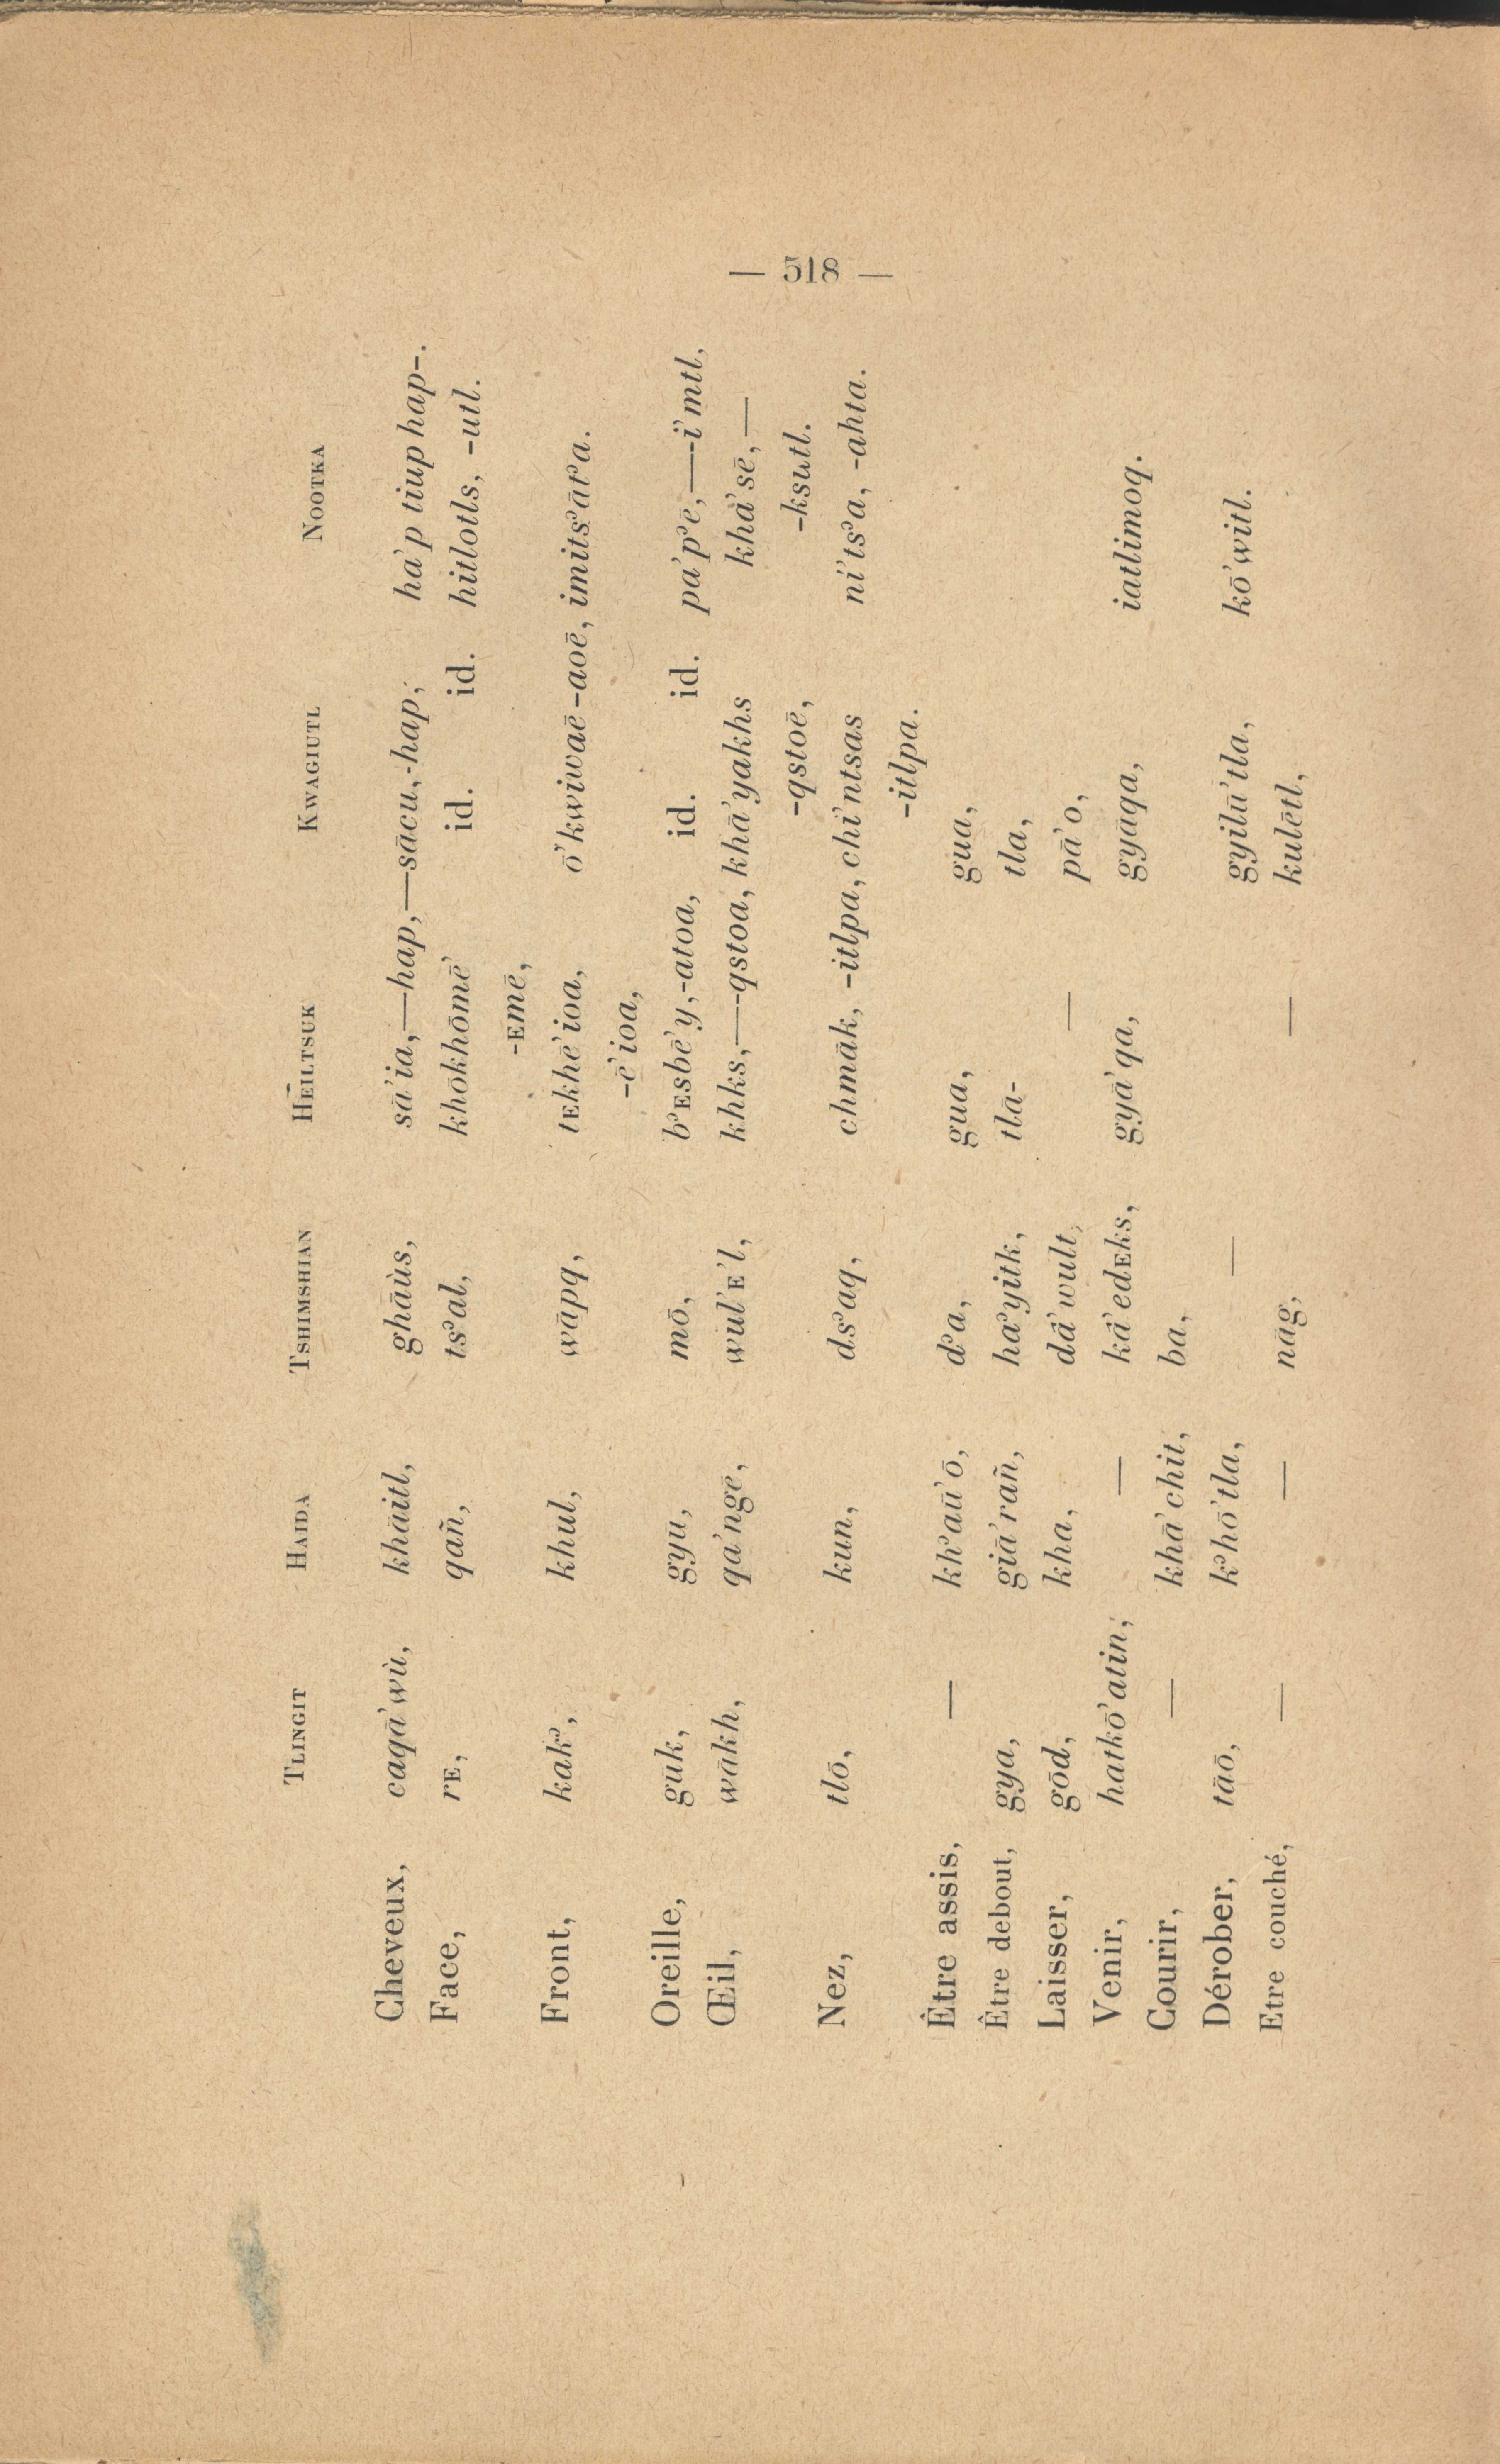 — 518 —
TLINGIT HAIDA TSHIMSHIAN HĒILTSUK KWAGIUTL NOOTKA
Cheveux, caqā'wù, khāitl, ghāùs, sā'ia,—hap,—sācu,-hap, ha'p tiup hap-.
Face, rE, qañ, tsᵓal, khokhōmē' id. id. hitlotls, -utl.
-Emē,
Front, kakᵓ, khul, wāpq, tEkhē'ioa, ō'kwiwaē-aoē, imitsᵓātᵓa.
-ē'ioa,
Oreille, gūk, gyu, mō, bᵓEsbē'y,-atoa, id. id. pa'pᵓē,—-i'mtl,
Œil, wākh, qa'ngē, wul'E'l, khks,—-qstoa, khā'yakhs khā'sē,—
-qstoē, -ksutl.
Nez, tlō, kun, dsᵓaq, chmāk, -itlpa, chi'ntsas ni'tsᵓa, -ahta.
-itlpa.
Être assis, — khᵓaū'ō, dᵓa, gua, gua,
Être debout, gya, giā'rañ, haᵓyitk, tla- tla,
Laisser, gōd, kha, dā'wult, — pā'o,
Venir, hatkō'atin, — kā'edEks, gyā'qa, gyāqa, iatlimoq.
Courir, — khā'chit, ba,
Dérober, tāō, kᵓhō'tla, — gyilū'tla, kō'witl.
Etre couché, — — nāg, — kulētl,